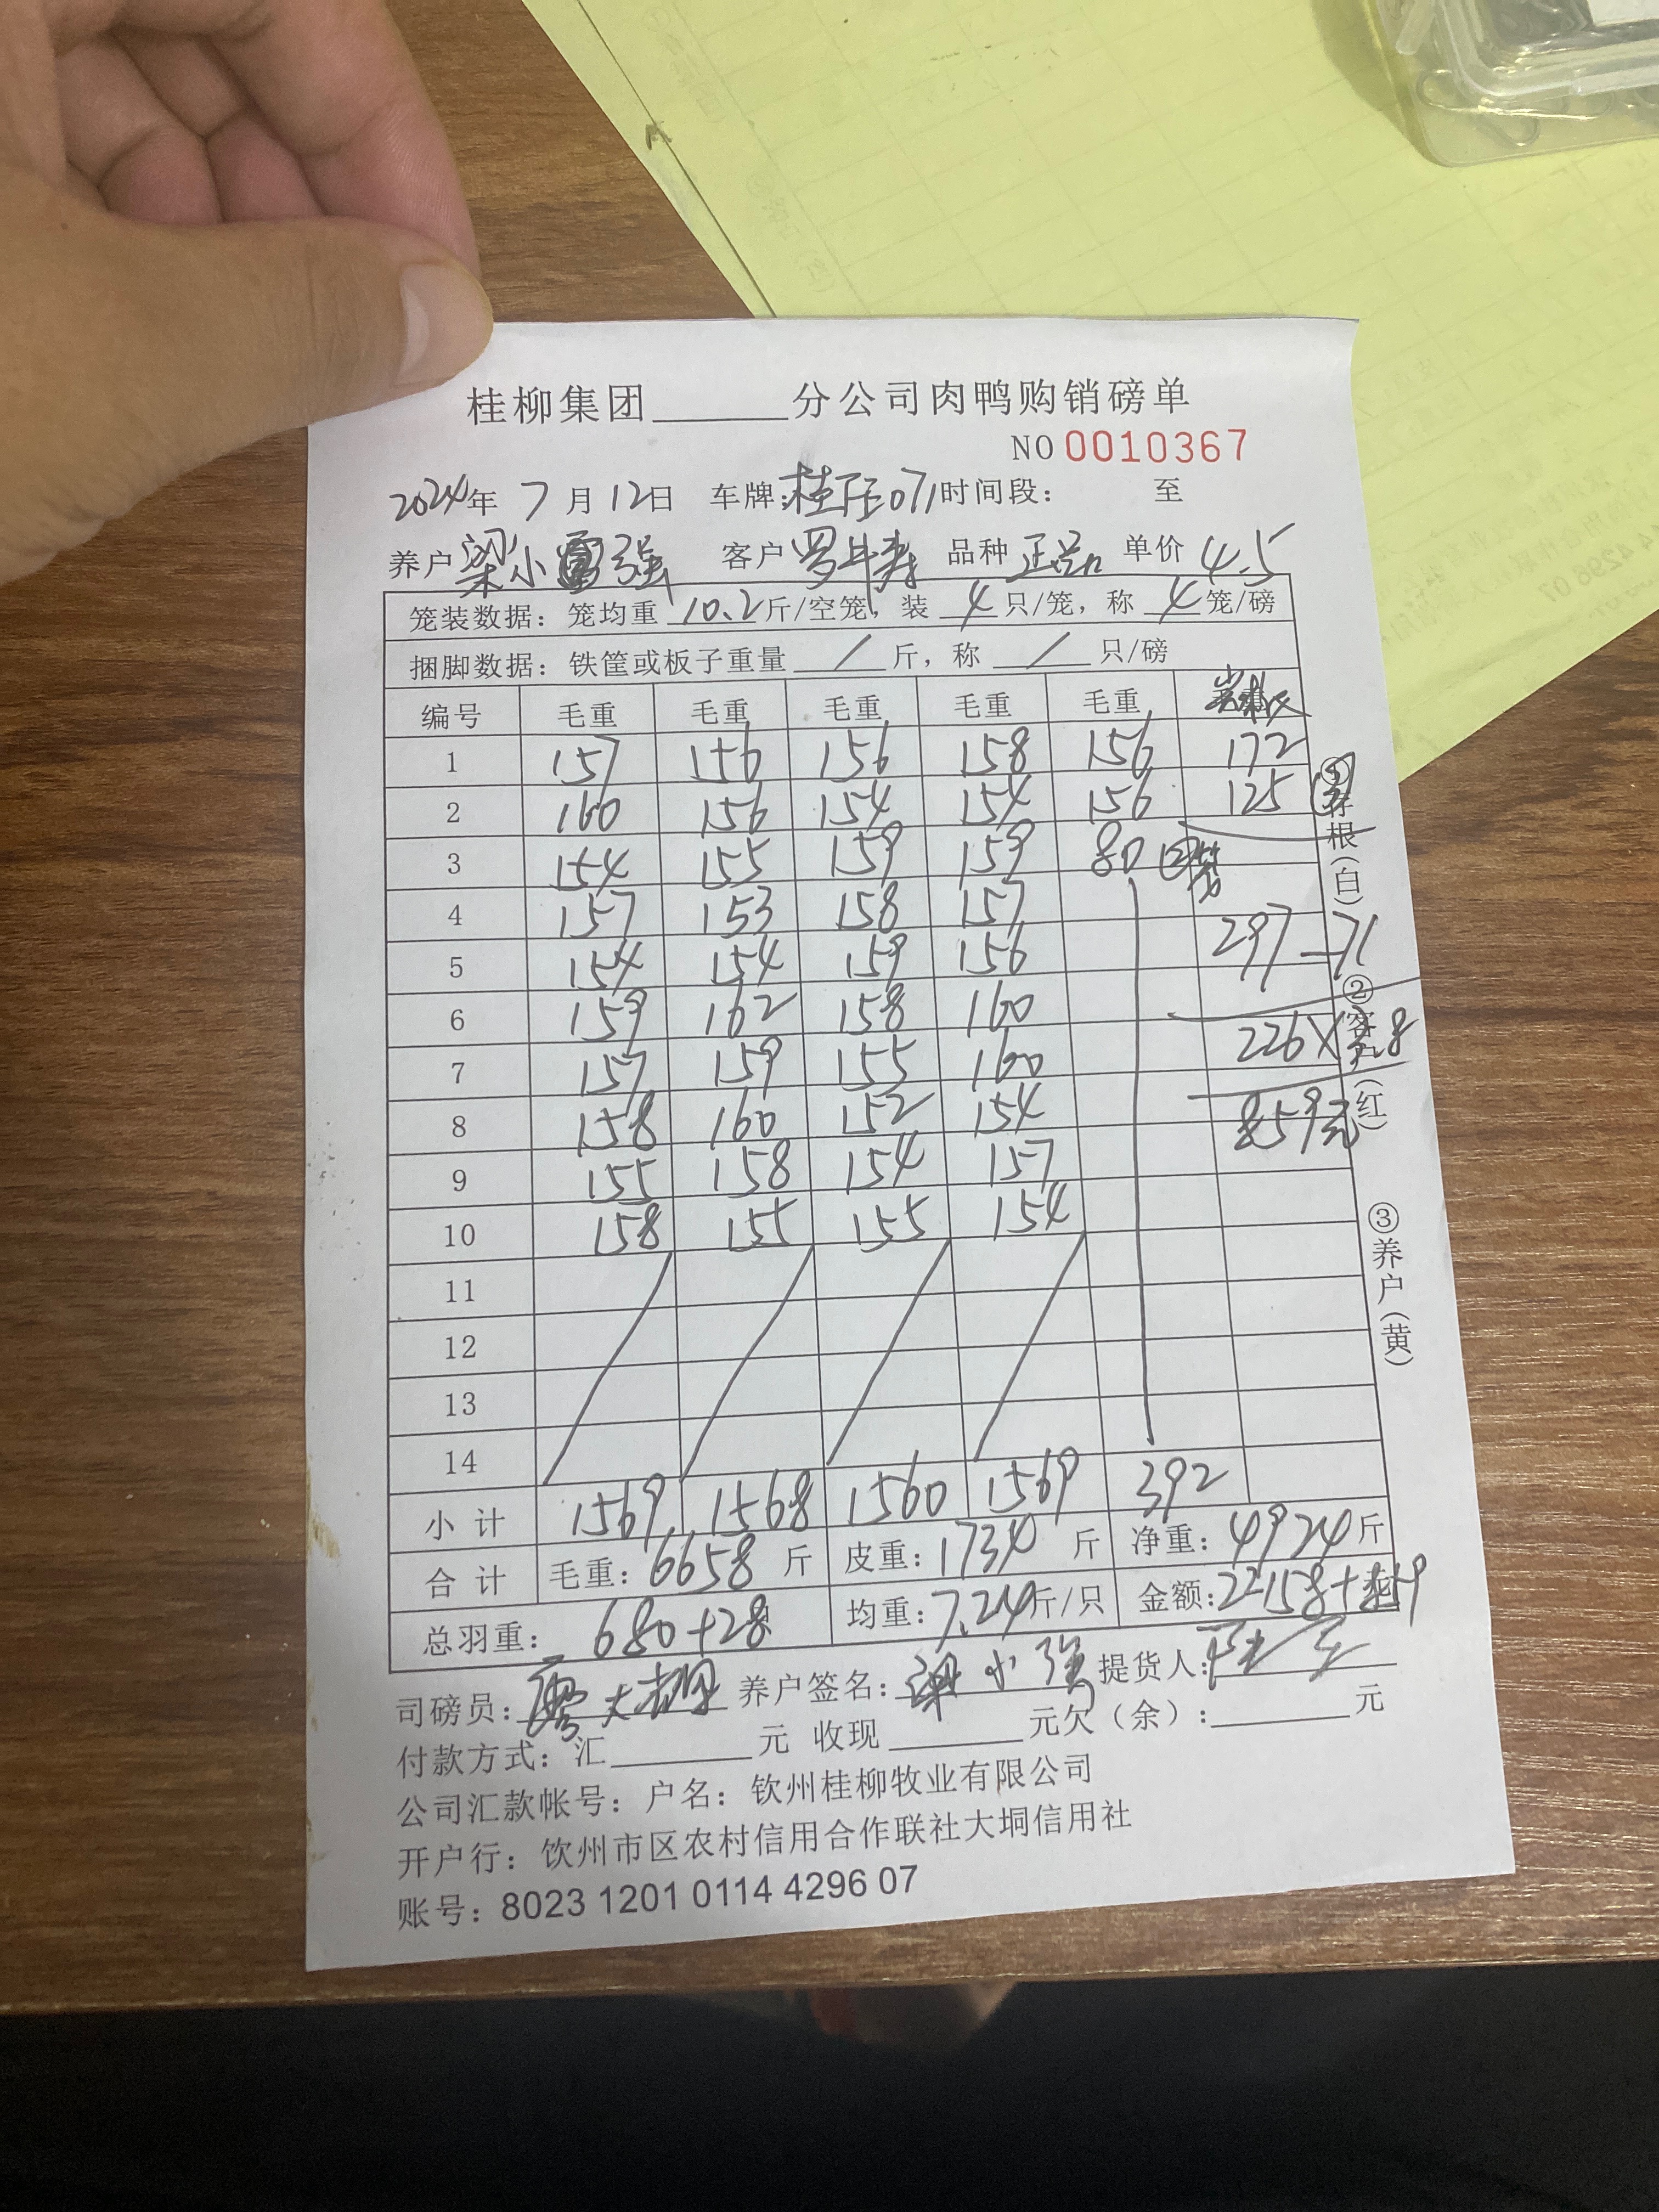 桂柳集团______分公司肉鸭购销磅单
NO 0010367
2024年 7月12日 车牌: 071 时间段: 至
养户 梁小强 客户 罗 品种 正品 单价 4.5
笼装数据: 笼均重 10.2 斤/空笼, 装 4 只/笼, 称 4 笼/磅
捆脚数据: 铁筐或板子重量 / 斤, 称 / 只/磅
编号 毛重 毛重 毛重 毛重 毛重
1 157 156 156 158 156 172
2 160 156 154 154 156 125
3 154 155 159 159 80 ②笼
4 157 153 158 157
297-71
5 154 154 159 156
6 159 162 158 160
226×3.8
7 157 159 155 160
8 158 160 152 154
859元
9 155 158 154 157
10 158 155 155 154
11
12
13
14
小计 1569 1568 1560 1569 392
合计 毛重: 6658 斤 皮重: 1734 斤 净重: 4924 斤
总羽重: 680+28 均重: 7.24斤/只 金额: 22158+859
司磅员: 养户签名: 梁小强 提货人:
付款方式: 汇______元 收现______元欠(余):______元
公司汇款帐号: 户名: 钦州桂柳牧业有限公司
开户行: 钦州市区农村信用合作联社大垌信用社
账号: 8023 1201 0114 4296 07
①存根(白)
②客户(红)
③养户(黄)